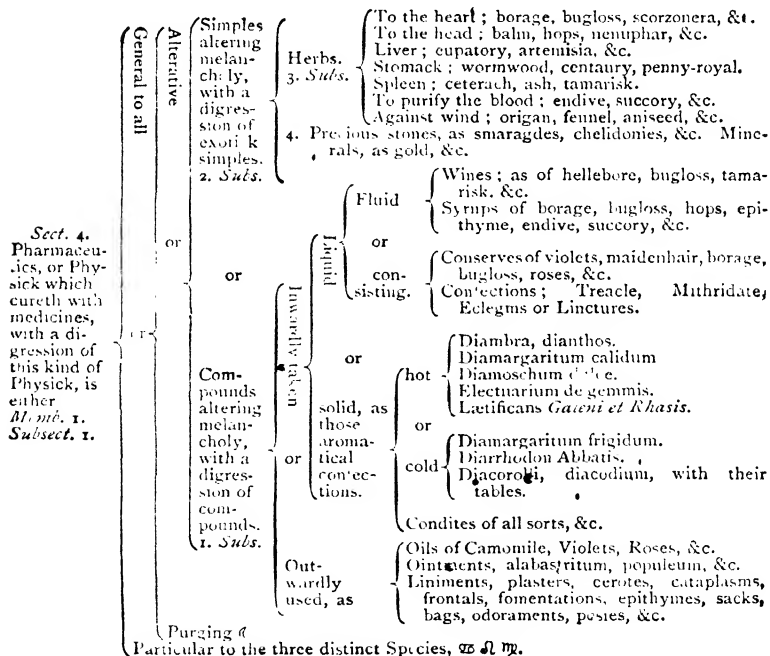 Sect. 4.
Pharmaceu-
tics, or Phy-
sick which
cureth with
medicines,
with a di-
gression of
this kind of
Physick, is
either
Memb. 1.
Subsect. 1.
General to all
or
Alterative
or
Simples
altering
melan-
choly,
with a
digres-
sion of
exotick
simples.
2. Subs.
Herbs.
3. Subs.
To the heart; borage, bugloss, scorzonera, &c.
To the head; balm, hops, nenuphar, &c.
Liver; eupatory, artemisia, &c.
Stomack; wormwood, centaury, penny-royal.
Spleen; ceterach, ash, tamarisk.
To purify the blood; endive, succory, &c.
Against wind; origan, fennel, aniseed, &c.
4. Precious stones, as smaragdes, chelidonies, &c. Mine-
rals, as gold, &c.
or
Com-
pounds
altering
melan-
choly,
with a
digres-
sion of
com-
pounds.
1. Subs.
Inwardly taken
Liquid
Fluid
Wines; as of hellebore, bugloss, tama-
risk. &c.
Syrups of borage, bugloss, hops, epi-
thyme, endive, succory, &c.
or
con-
sisting.
Conserves of violets, maidenhair, borage,
bugloss, roses, &c.
Confections; Treacle, Mithridate,
Eclegms or Linctures.
or
solid, as
those
aroma-
tical
confec-
tions.
hot
Diambra, dianthos.
Diamargaritum calidum
Diamoschum dulce.
Electuarium de gemmis.
Lætificans Galeni et Rhasis.
or
cold
Diamargaritum frigidum.
Diarrhodon Abbatis.
Diacorolli, diacodium, with their
tables.
Condites of all sorts, &c.
or
Out-
wardly
used, as
Oils of Camomile, Violets, Roses, &c.
Ointments, alabastritum, populeum, &c.
Liniments, plasters, cerotes, cataplasms,
frontals, fomentations, epithymes, sacks,
bags, odoraments, posies, &c.
Purging
Particular to the three distinct Species, ♋ ♌ ♍.